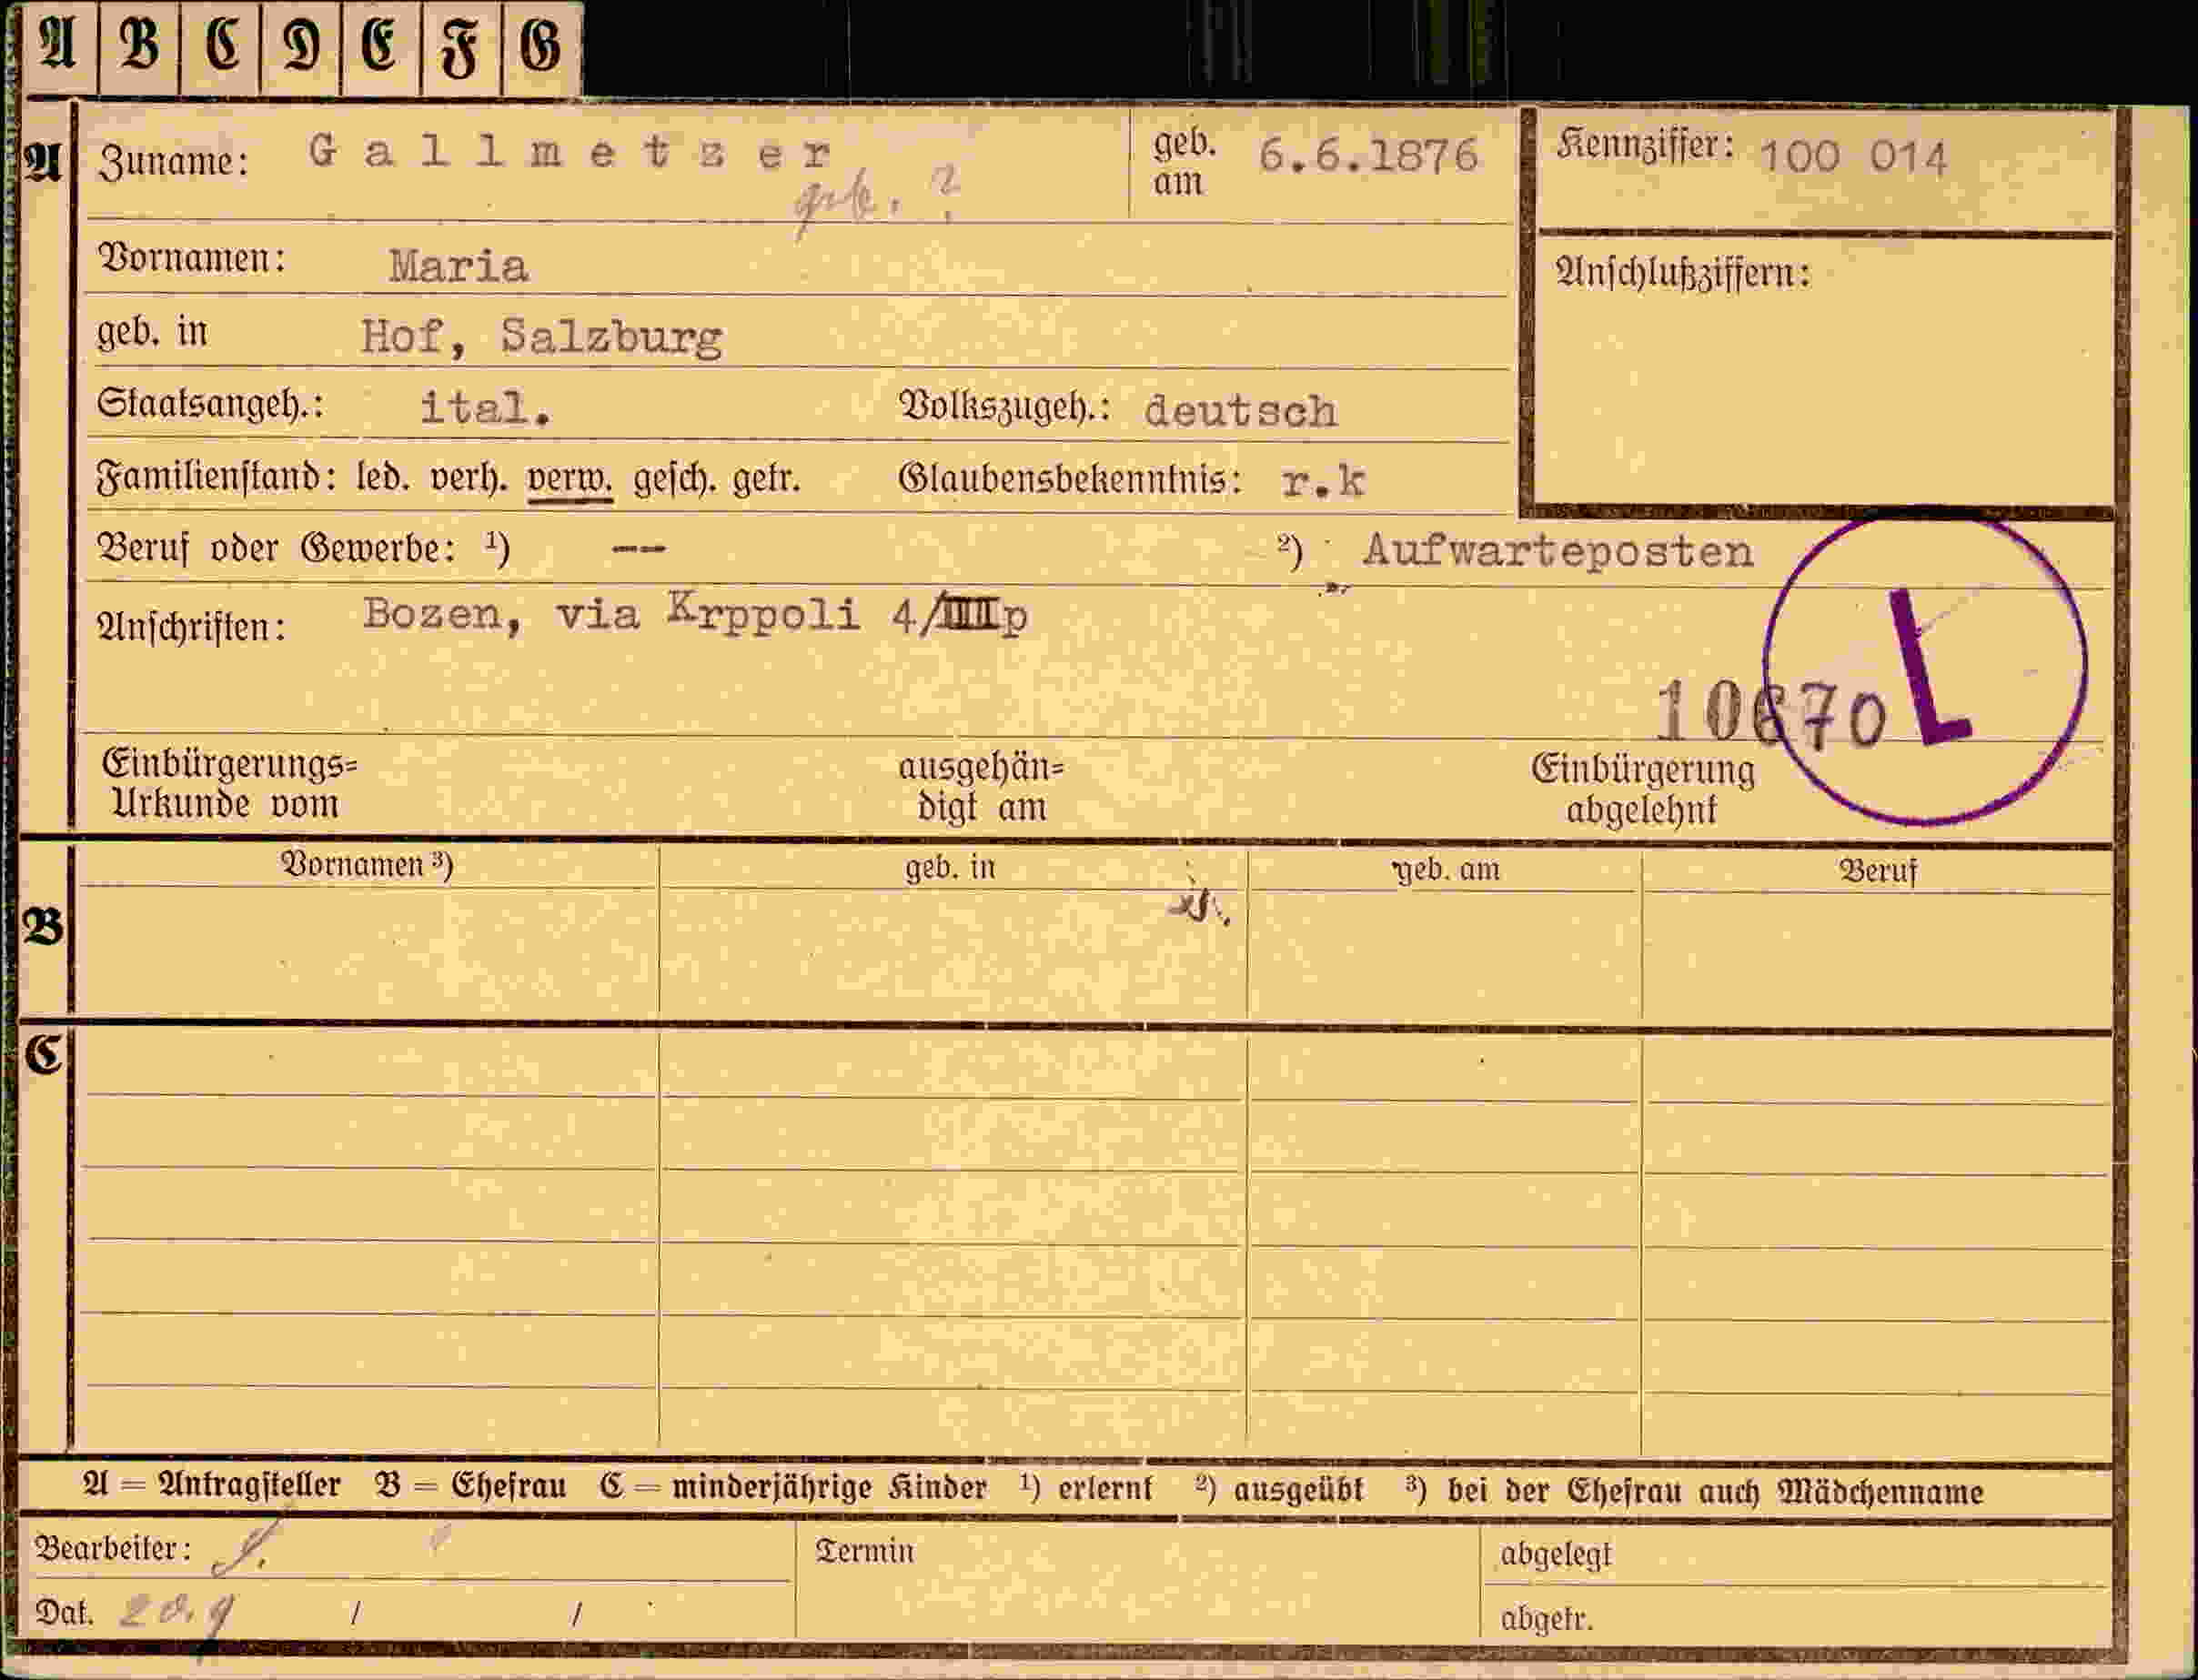 A B C D E F G
A Zuname: Gallmetzer geb. am 6.6.1876 Kennziffer: 100 014
geb. ?
Vornamen: Maria Anschlußziffern:
geb. in Hof, Salzburg
Staatsangeh.: ital. Volkszugeh.: deutsch
Familienstand: led. verh. verw. gesch. getr. Glaubensbekenntnis: r.k
Beruf oder Gewerbe: ¹) -- ²) Aufwarteposten
Anschriften: Bozen, via Krppoli 4/IIIp
L
10670
Einbürgerungs= ausgehän= Einbürgerung
Urkunde vom digt am abgelehnt
Vornamen ³) geb. in geb. am Beruf
B
C
A = Antragsteller B = Ehefrau C = minderjährige Kinder ¹) erlernt ²) ausgeübt ³) bei der Ehefrau auch Mädchenname
Bearbeiter: Termin abgelegt
Dat. / / abgetr.